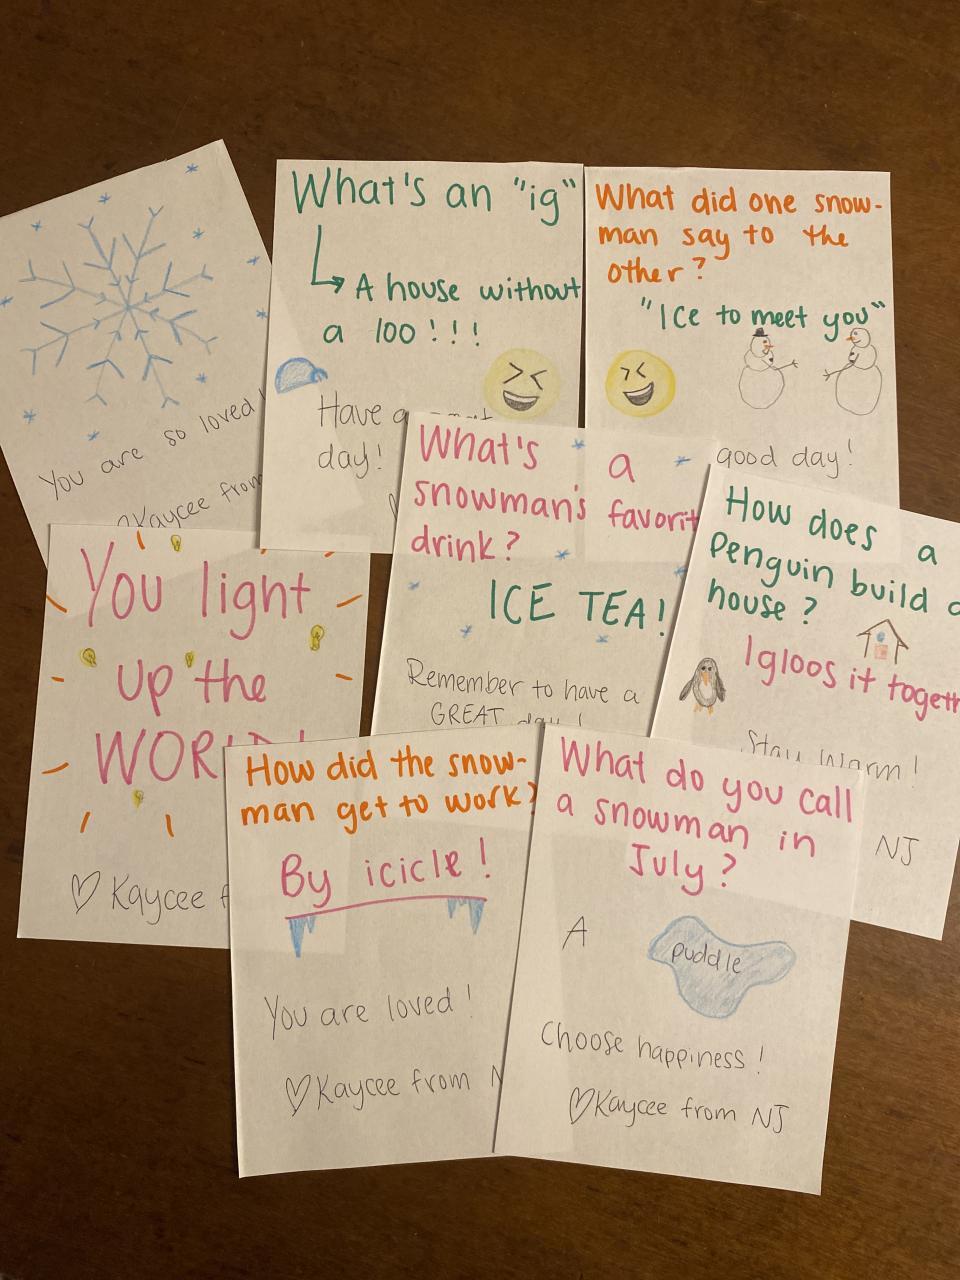 You are so loved
Kaycee from
What's an "ig"
A house without
a loo!!!
Have a
day!
What did one snow-
man say to the
other?
"Ice to meet you"
good day!
You light
up the
Kaycee
What's a
snowman's favorit
drink?
ICE TEA!
Remember to have a
GREAT day!
How does a
Penguin build a
house?
Igloos it togeth
Stay Warm!
NJ
How did the snow-
man get to work?
By icicle!
You are loved!
Kaycee from N
What do you call
a snowman in
July?
A puddle
Choose happiness!
Kaycee from NJ